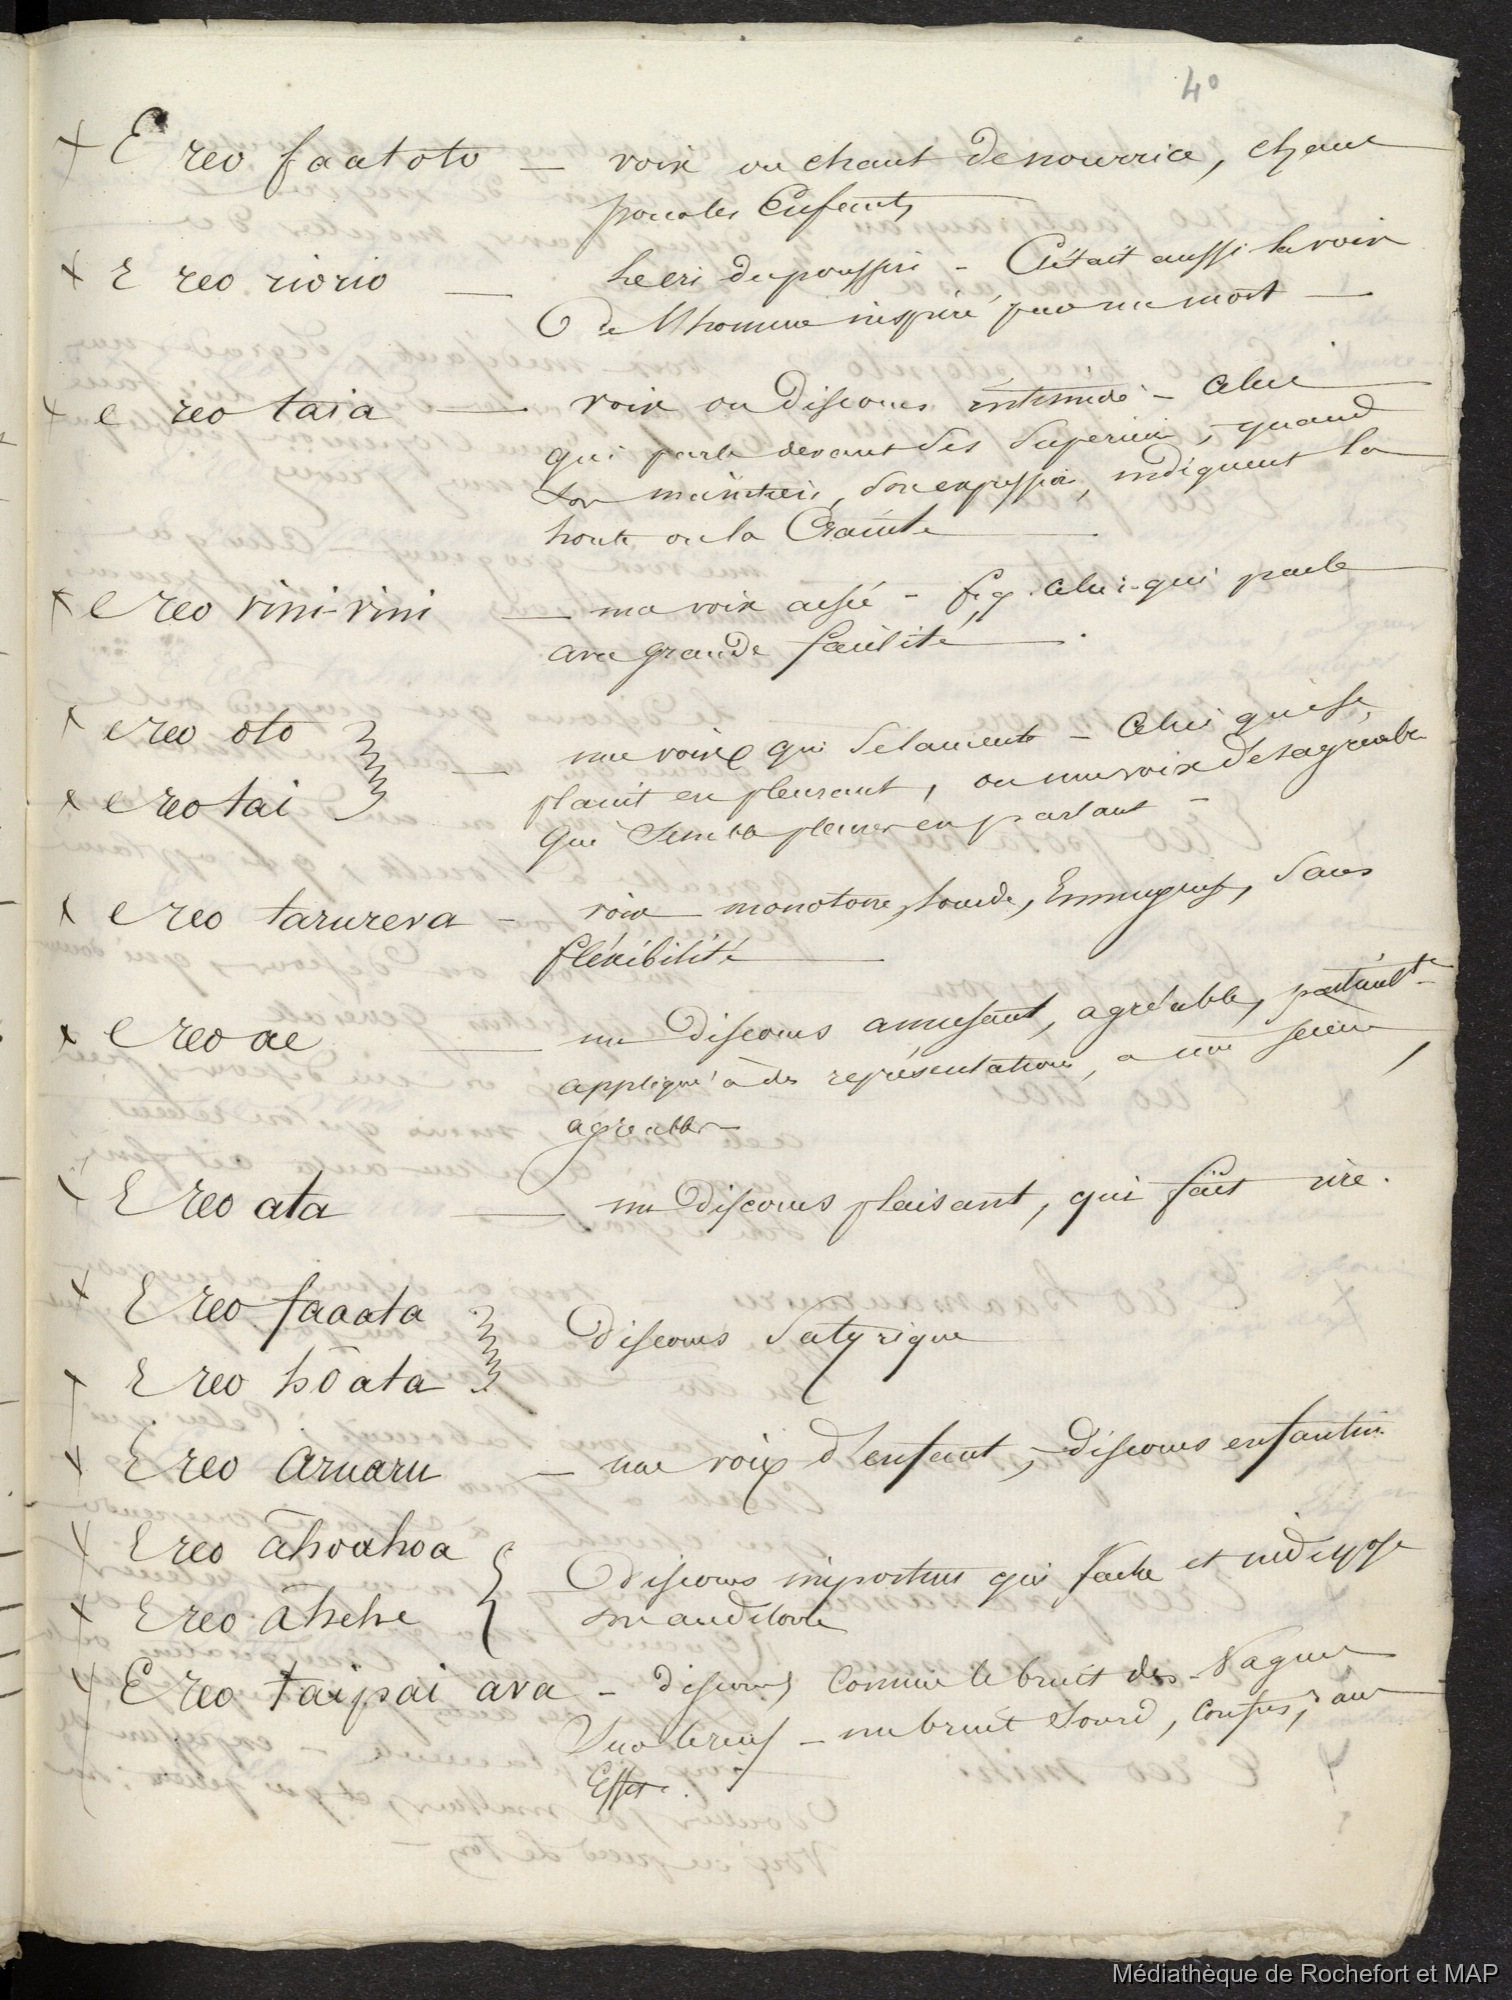 40
+ E reo faatoto — voix ou chant de nourrice, chant
pour les Enfants
+ E reo riorio — le cri du poussin - C'était aussi la voix
de l'homme inspiré par un mort —
+ e reo taia — voix ou discours intimidé - celui
qui parle devant des supérieurs, quand
son maintien, son expression, indiquent la
honte ou la Crainte
+ e reo vini-vini — une voix aisée - fig. celui qui parle
avec grande facilité.
+ e reo oto
une voix qui se lamente - Celui qui se
+ e reo tai
plaint en pleurant, ou une voix désagréable
qui semble pleurer en parlant -
+ e reo tarureva - voix monotone, sourde, Ennuyeuse, sans
fléxibilité
+ e reo ae — un discours amusant, agréable, particult
appliqué à des représentations, a une scène
agréable
+ E reo ata — un discours plaisant, qui fait rire.
+ E reo faaata
Discours Satyrique
+ E reo hōata
+ E reo aruaru — une voix d'enfant, - Discours enfantin
+ E reo āhoahoa
Discours importun qui fache et indispose
+ E reo āhehe
son auditoire
+ E reo taipai ava - discours comme le bruit des Vagues
sur le récif - un bruit sourd, confus, sans
Effet.
Médiathèque de Rochefort et MAP